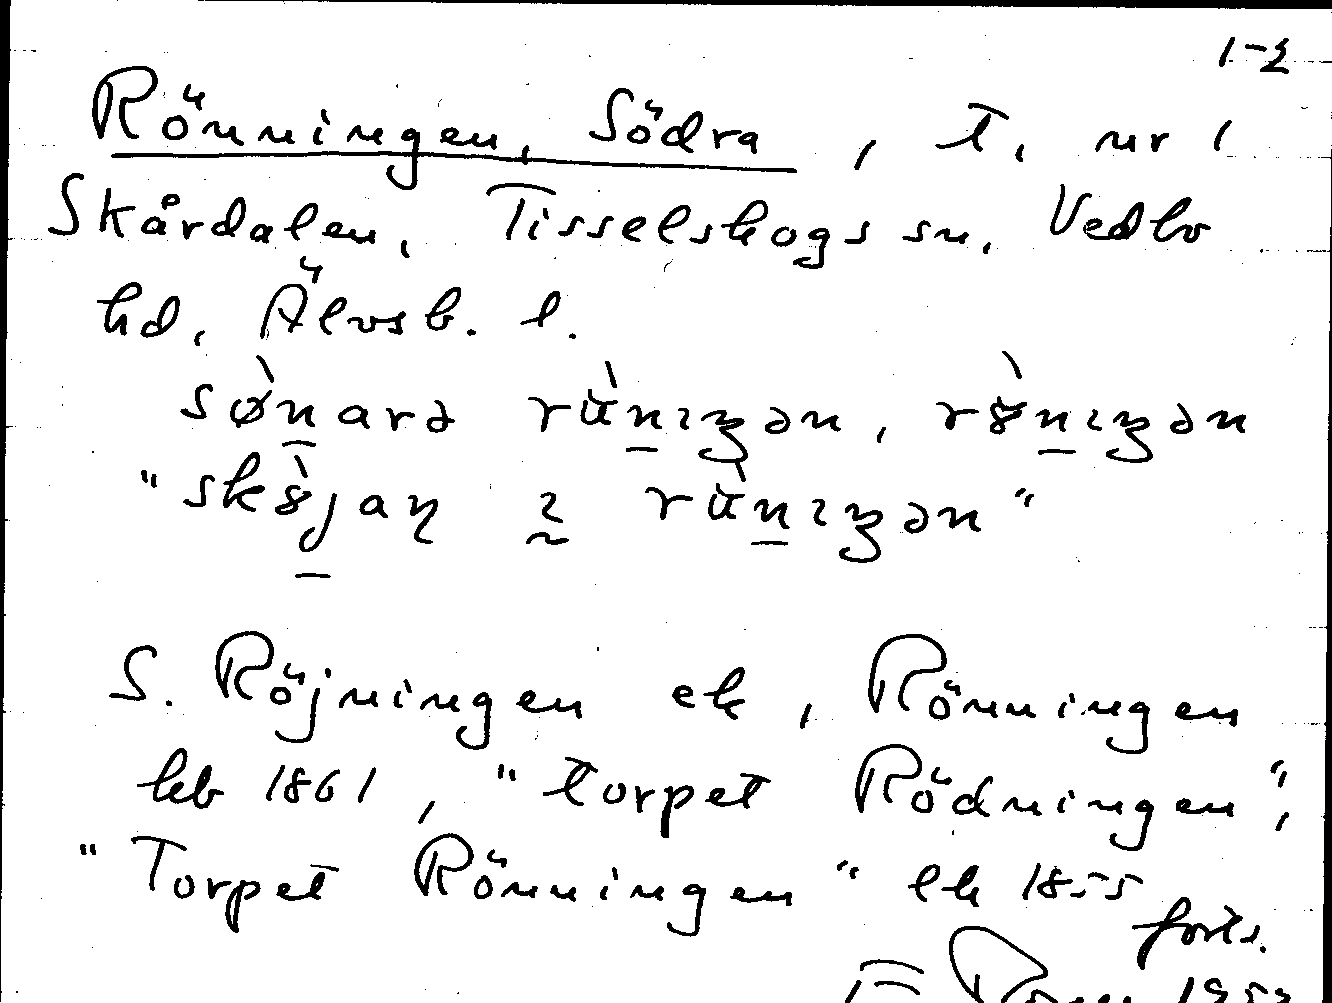 1-2
Rönningen, Södra, T. nr 1
Skårdalen, Tisselskogs sn, Vedbo
hd, Älvsb. l.
sø̀n̲arə rùn̲ıŋən, rɵ̀n̲ıŋən
S. Röjningen ek, Rönningen
kb 1861, "torpet Rödningen",
"Torpet Rönningen" lk 1855
forts.